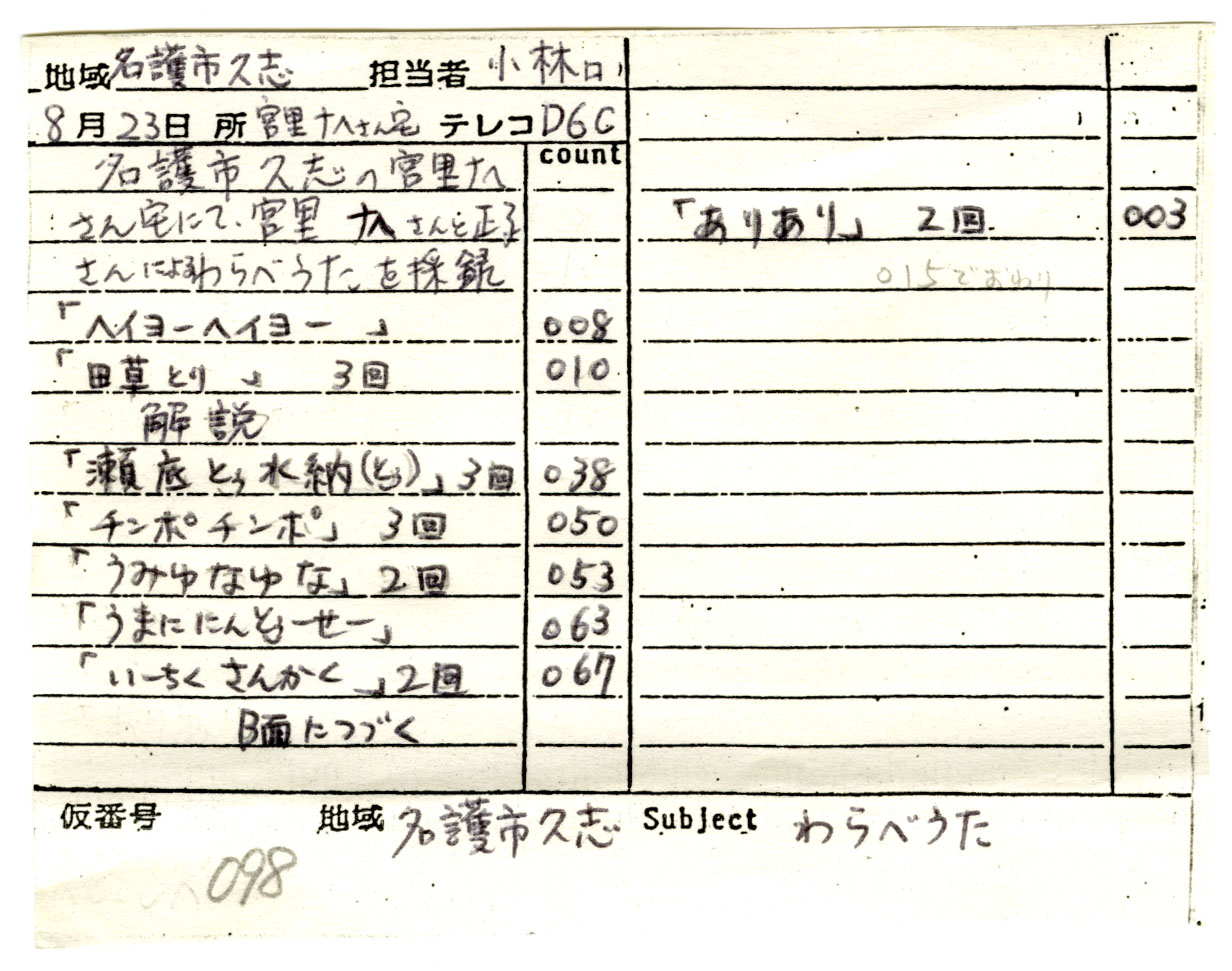 地域 名護市久志 担当者 小林
8月23日 所 宮里ナヘさん宅 テレコ D6C
count
名護市久志の宮里ナヘ
さん宅にて、宮里ナヘさんと正子
さんによるわらべうたを採録
「ヘイヨーヘイヨー」 008
「田草とり」 3回 010
解説
「瀬底とぅ水納(とぅ)」3回 038
「チンポチンポ」 3回 050
「うみゆなゆな」2回 053
「うまににんとぅーせー」 063
「いーちく さんかく」2回 067
B面につづく
「ありあり」 2回. 003
015でおわり
仮番号 地域 名護市久志 Subject わらべうた
098